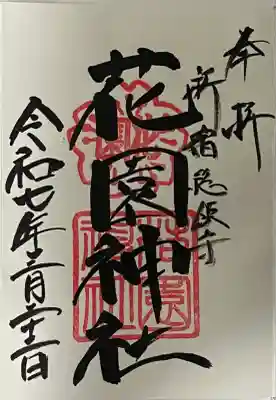 奉拝
新宿総鎮守
花園神社
令和七年二月二十二日